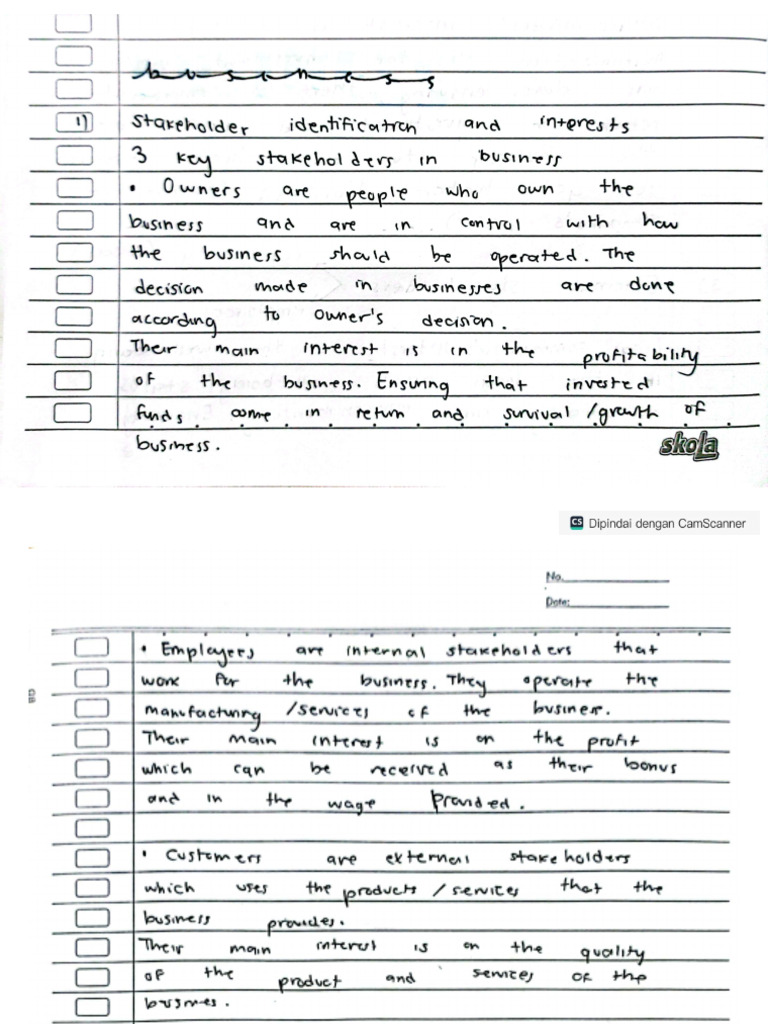 business
1) Stakeholder identification and interests
3 key stakeholders in business
• Owners are people who own the
business and are in control with how
the business should be operated. The
decision made in businesses are done
according to owner's decision.
Their main interest is in the profitability
of the business. Ensuring that invested
funds come in return and survival /growth of
business.
skola
CS Dipindai dengan CamScanner
No.
Date:
• Employees are internal stakeholders that
work for the business. They operate the
manufacturing /services of the business.
Their main interest is on the profit
which can be received as their bonus
and in the wage provided.
• Customers are external stakeholders
which uses the products / services that the
business provides.
Their main interest is on the quality
of the product and services of the
busines.